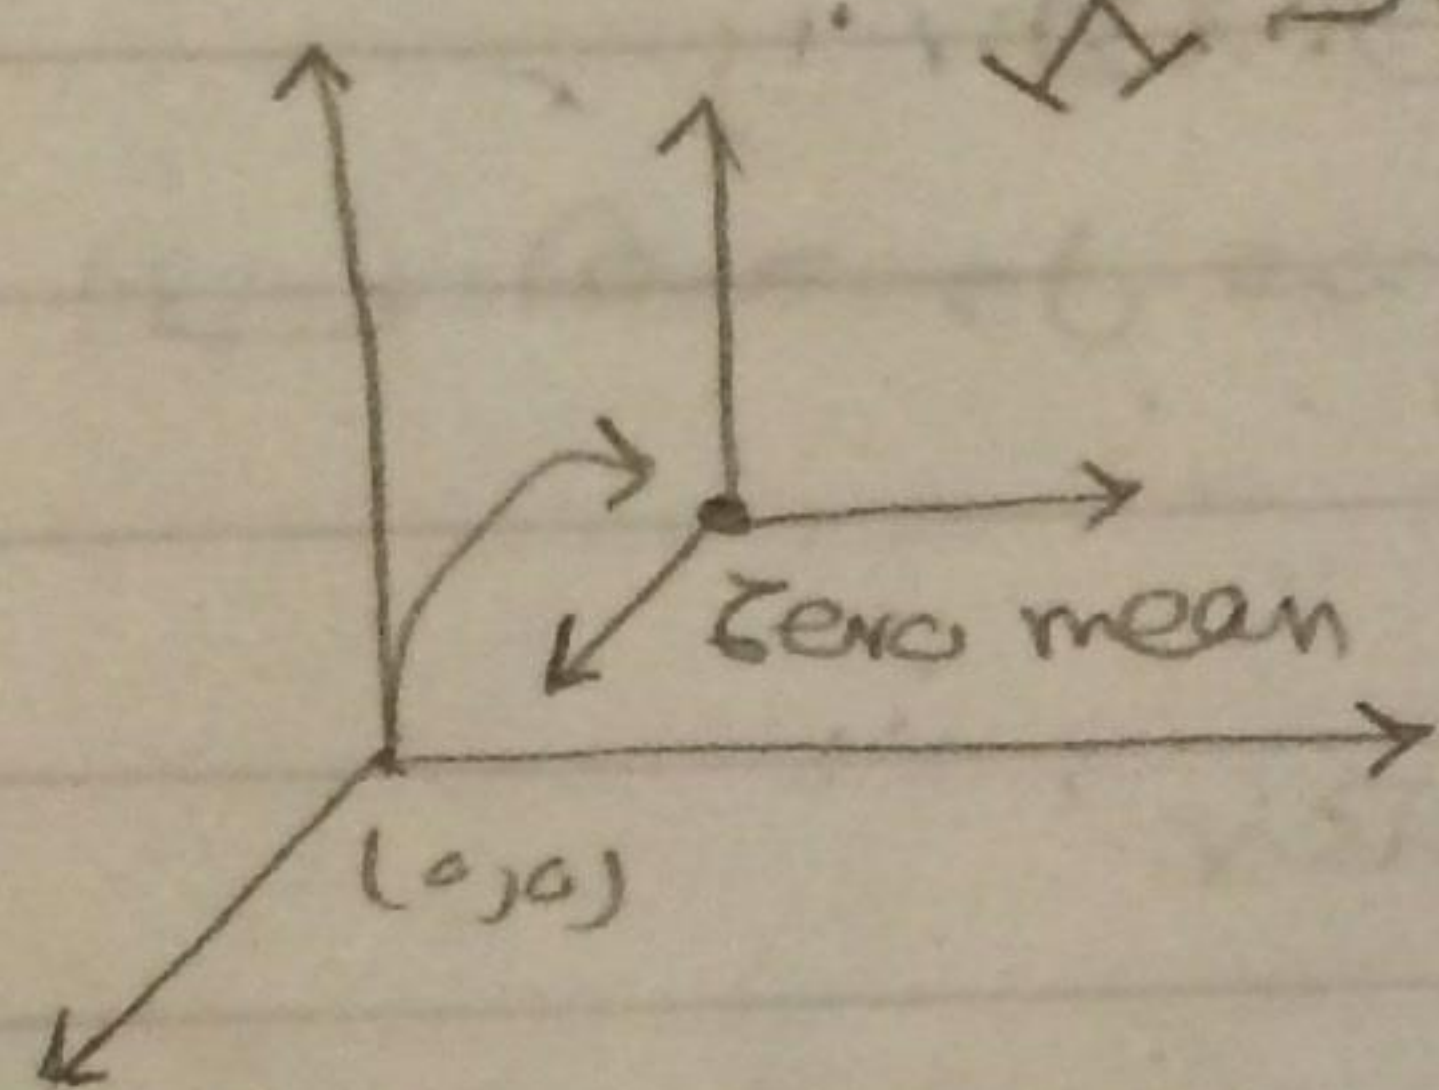 zero mean
(0,0)